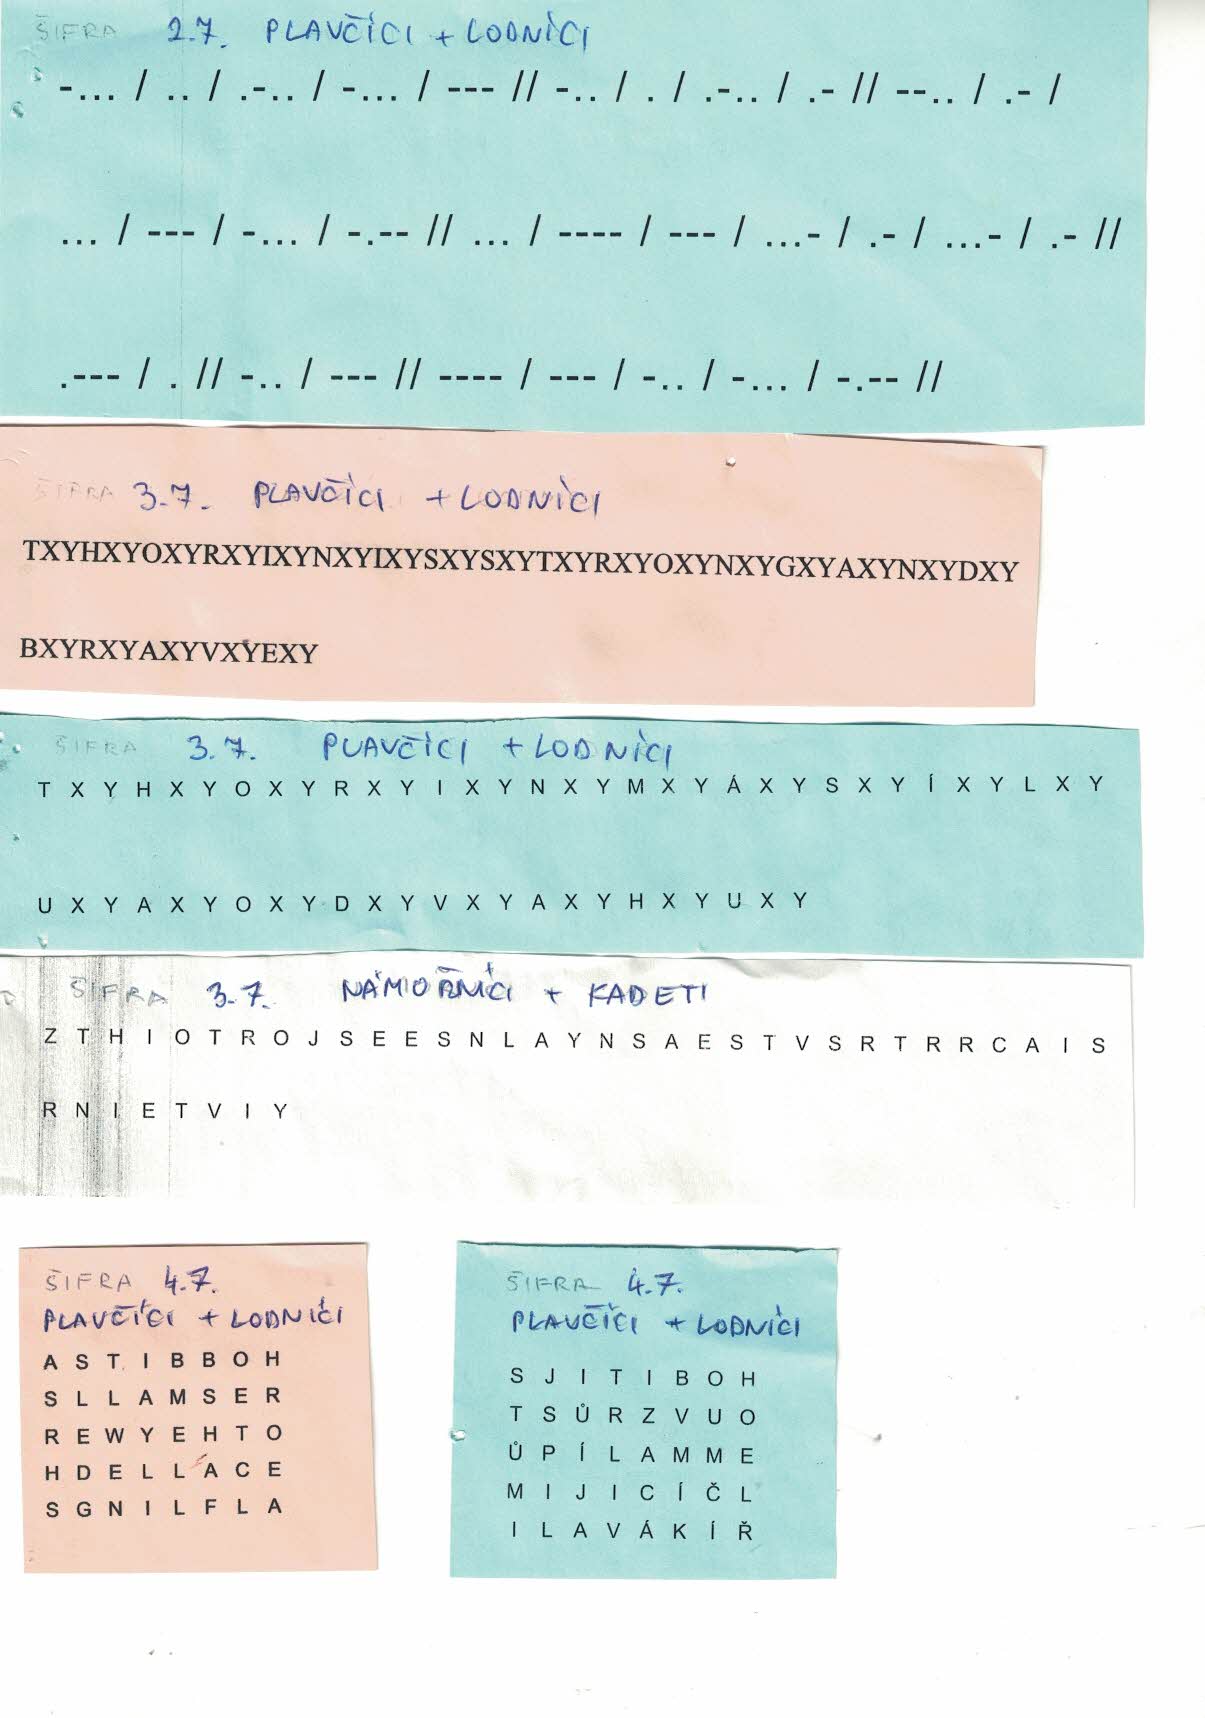 ŠIFRA 2.7. PLAVČÍCI + LODNÍCI
-... / .. / .-.. / -... / --- // -.. / . / .-.. / .- // --.. / .- /
... / --- / -... / -.-- // ... / ---- / --- / ...- / .- / ...- / .- //
.--- / . // -.. / --- // ---- / --- / -.. / -... / -.-- //
ŠIFRA 3.7. PLAVČÍCI + LODNÍCI
TXYHXYOXYRXYIXYNXYIXYSXYSXYTXYRXYOXYNXYGXYAXYNXYDXY
BXYRXYAXYVXYEXY
ŠIFRA 3.7. PLAVČÍCI + LODNÍCI
T X Y H X Y O X Y R X Y I X Y N X Y M X Y Á X Y S X Y Í X Y L X Y
U X Y A X Y O X Y D X Y V X Y A X Y H X Y U X Y
ŠIFRA 3.7. NÁMOŘNÍCI + KADETI
Z T H I O T R O J S E E S N L A Y N S A E S T V S R T R R C A I S
R N I E T V I Y
ŠIFRA 4.7.
PLAVČÍCI + LODNÍCI
A S T I B B O H
S L L A M S E R
R E W Y E H T O
H D E L L A C E
S G N I L F L A
ŠIFRA 4.7.
PLAVČÍCI + LODNÍCI
S J I T I B O H
T S Ů R Z V U O
Ů P Í L A M M E
M I J I C Í Č L
I L A V Á K Í Ř